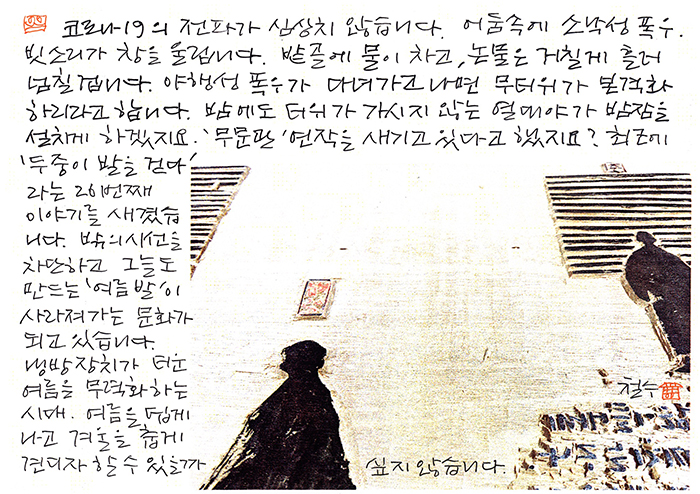 코로나-19의 전파가 심상치 않습니다. 어둠속에 소낙성 폭우.
빗소리가 창을 울립니다. 밭골에 물이 차고, 논물은 거칠게 흘러
넘칠겁니다. 야행성 폭우가 다녀가고 나면 무더위가 본격화
하리라고 합니다. 밤에도 더위가 가시지 않는 열대야가 밤잠을
설치게 하겠지요. '무문관' 연작을 새기고 있다고 했지요? 최근에
'두 중이 발을 걷다'
라는 26번째
이야기를 새겼습
니다. 밖의 시선을
차단하고 그늘도
만드는 '여름 발'이
사라져가는 문화가
되고 있습니다.
냉방장치가 더운
여름을 무력화하는
시대. 여름을 덥게
나고 겨울을 춥게
견디자 할 수 있을까
싶지 않습니다.
철수